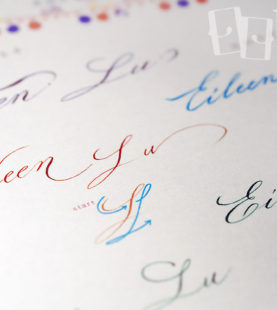 een Lu
Eileen
leen Lu
start
Ei
Lu